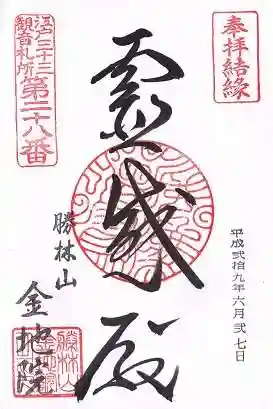 奉拝結縁
江戸三十三
観音札所
第二十八番
霊感殿
平成弐拾九年六月弐七日
勝林山
金地院